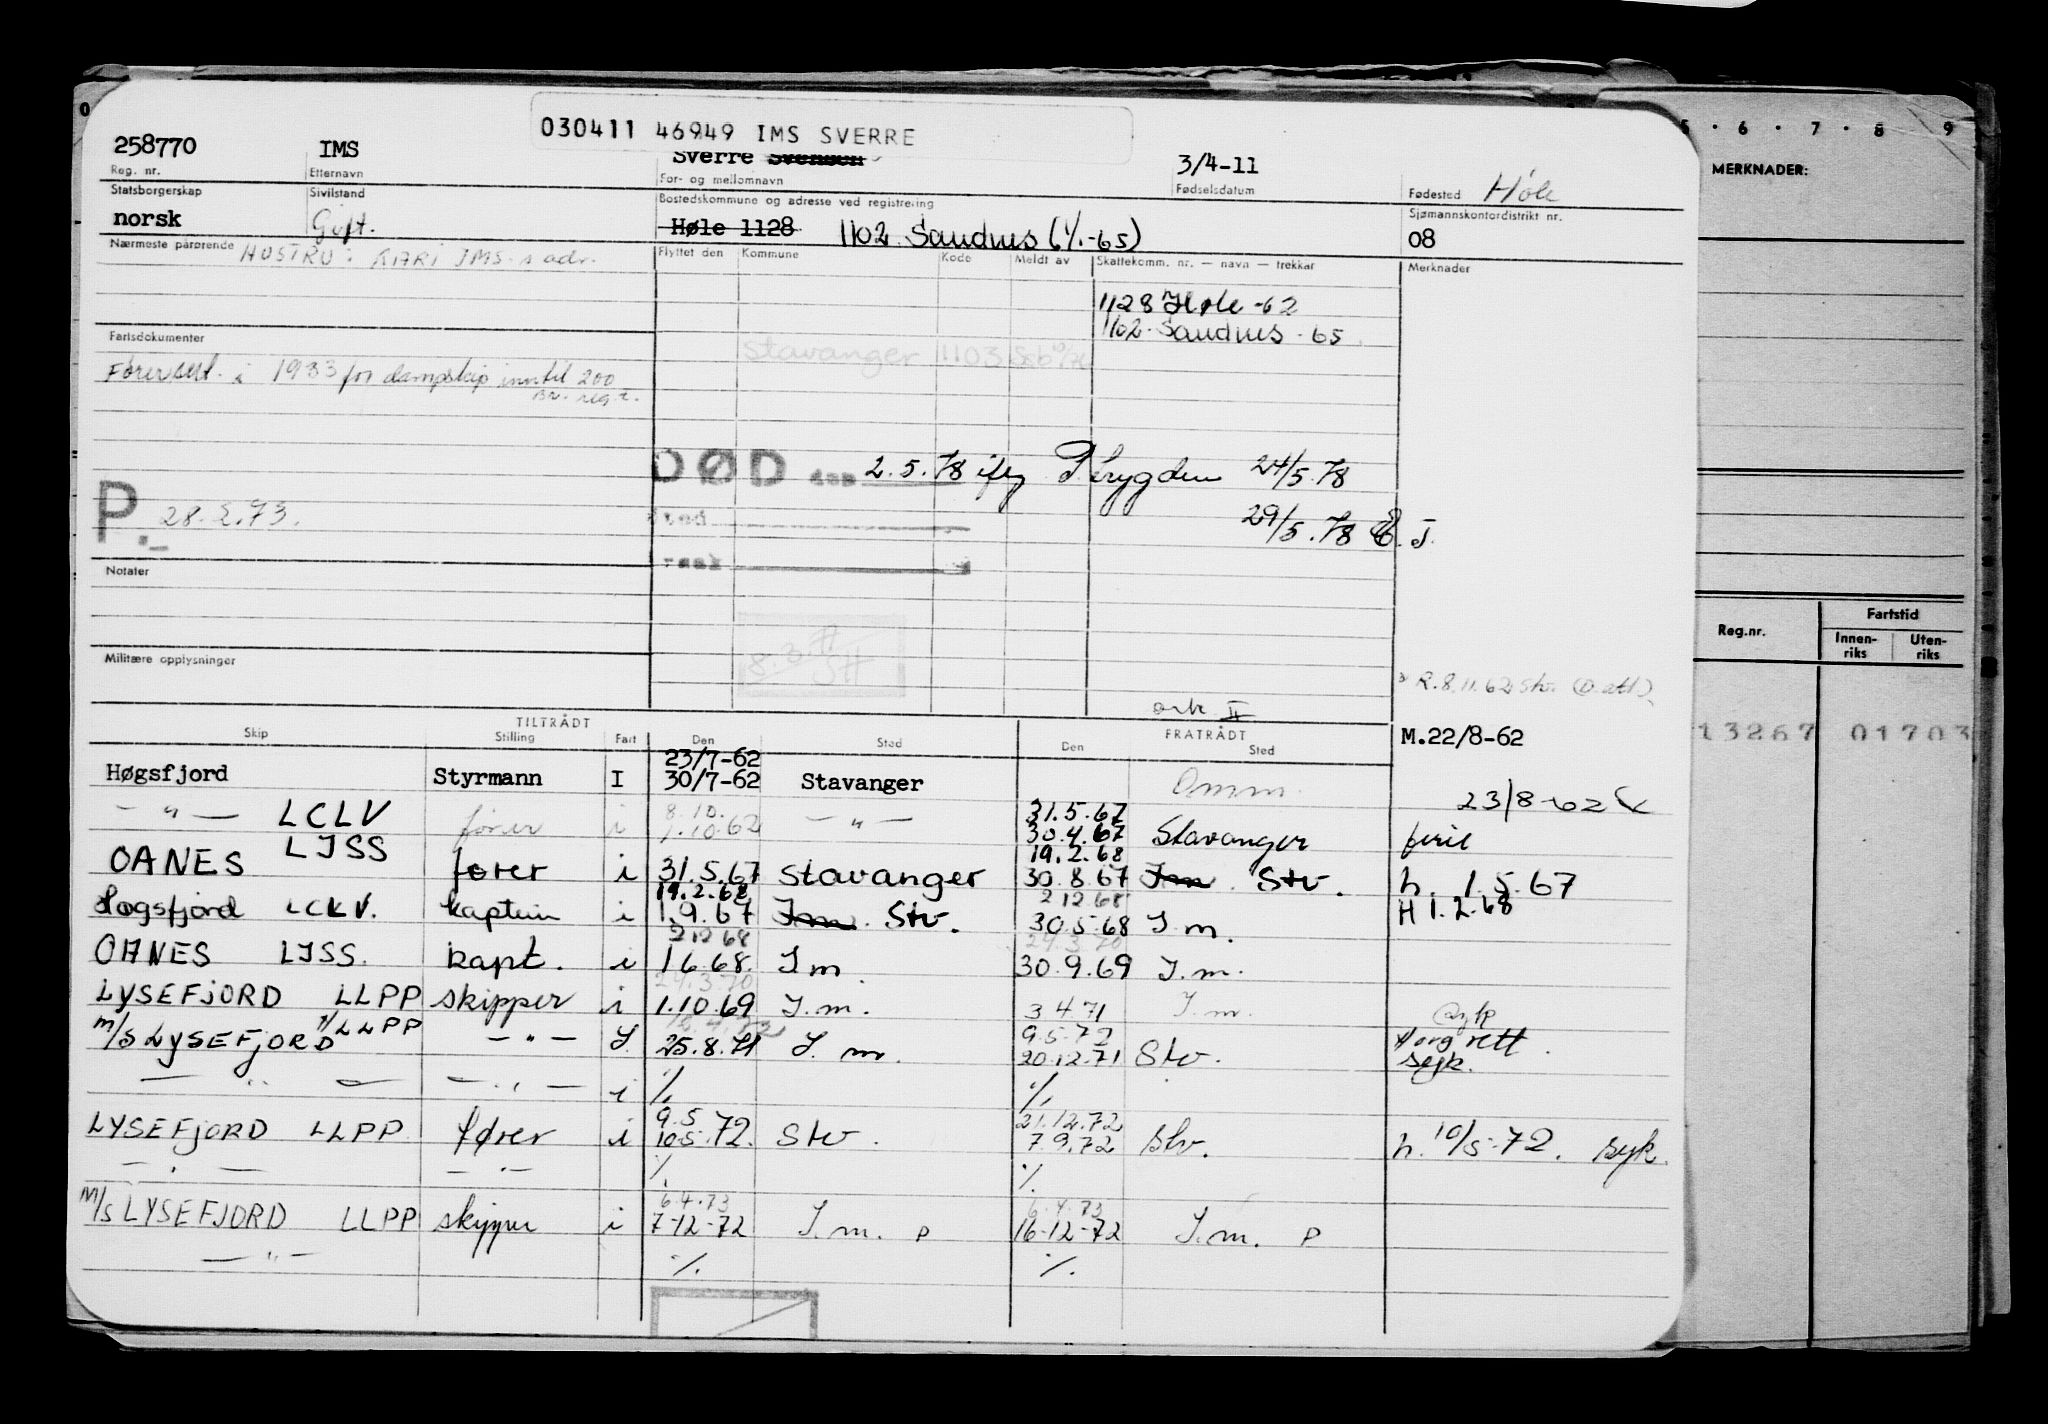 030411 46949 IMS SVERRE
258770 IMS Sverre Svensen 3/4-11
Reg. nr. Etternavn For- og mellomnavn Fødselsdatum Fødested Høle
Statsborgerskap Sivilstand Bostedskommune og adresse ved registrering Sjømannskontordistrikt nr.
norsk Gift. Høle 1128 1102 Sandnes (1/1-65) 08
Nærmeste pårørende HUSTRU: KARI IMS s adr. Flyttet den Kommune Kode Meldt av Skattekomm. nr. — navn — trekkar Merknader
1128 Høle -62
1102 Sandnes - 65
Fartsdokumenter
Stavanger 1103
Førersert. i 1933 for dampskip inntil 200
Br. reg. t.
DØD den 2.5.78 iflg P.trygden 24/5.78
P. 28.2.73.
Sted 29/5.78 J.
Notater
8.3.
Militære opplysninger
R.8.11.62 Stv.
ark II
TILTRÅDT FRATRÅDT
Skip Stilling Fart Den Sted Den Sted
M.22/8-62
23/7-62
Høgsfjord Styrmann I 30/7-62 Stavanger Omm.
23/8-62
8.10. 31.5.67
— " — LCLV fører i 1.10.62 — " — 30.4.67 Stavanger ferie
19.2.68
OANES LJSS fører i 31.5.67 Stavanger 30.8.67 I.m. Stv. h. 1.5.67
19.2.68 2 12 68
Høgsfjord LCLV. kaptein i 1.9.67 I.m. Stv. 30.5.68 I m. H 1.2.68
2 12 68 24.3.70
OANES LJSS. kapt. i 1 6 68. I m 30.9.69 I.m.
24.3.70
LYSEFJORD LLPP skipper i 1.10.69 I.m. 3 4 71 I.m.
9.5.72
m/s LYSEFJORD LLPP — " — I. 25.8.71 I. m. 20.12.71 Stv. syk.
— " — — " — i %. %.
9.5 21.12.72
LYSEFJORD LLPP fører i 10.5.72. Stv. 7.9.72 Stv. h. 10/5-72. syk.
— " — — " — %. %.
6.4.73 6.4.73
m/s LYSEFJORD LLPP skipper i 7-12-72 I.m. P 16-12-72 I.m. P
— " — %. %.
5 · 6 · 7 · 8 · 9
MERKNADER:
Fartstid
Reg.nr. Innen-riks Uten-riks
13267 01703